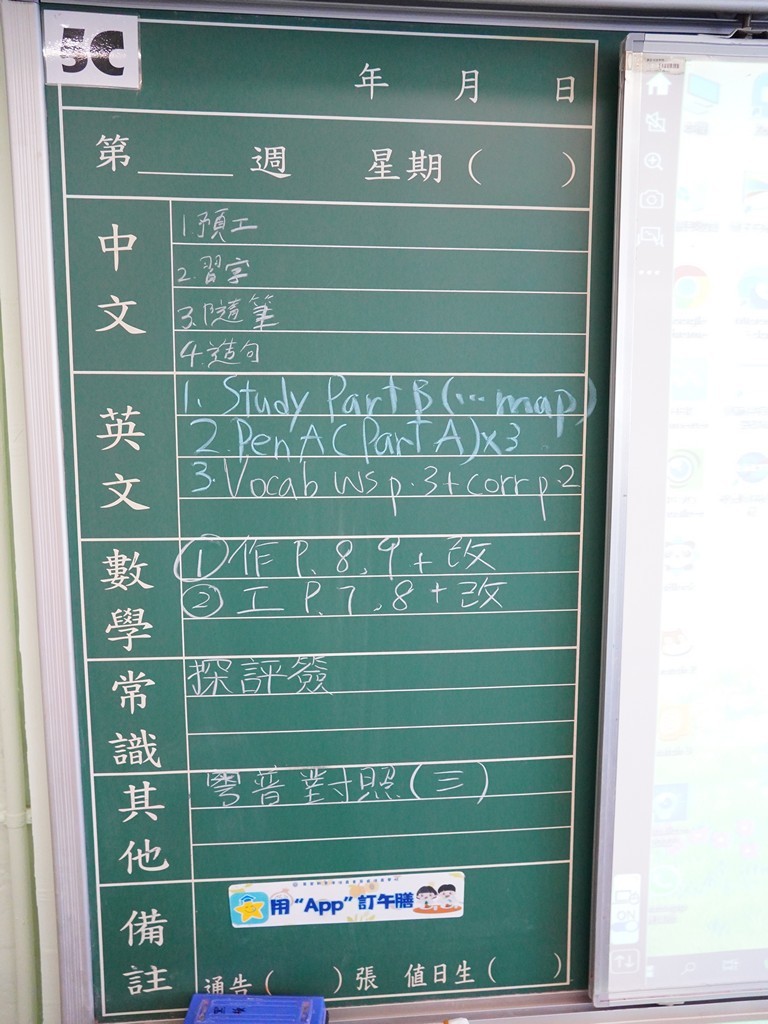 5C
年 月 日
第____週 星期( )
中文
1.預工
2.習字
3.隨筆
4.造句
英文
1. Study Part B (... map)
2. Pen A (Part A) x3
3. Vocab WS p.3 + corr p.2
數學
① 作 P.8,9 + 改
② 工 P.7,8 + 改
常識
探評簽
其他
粵普對照(三)
備註
用“App”訂午膳
通告( )張 值日生( )